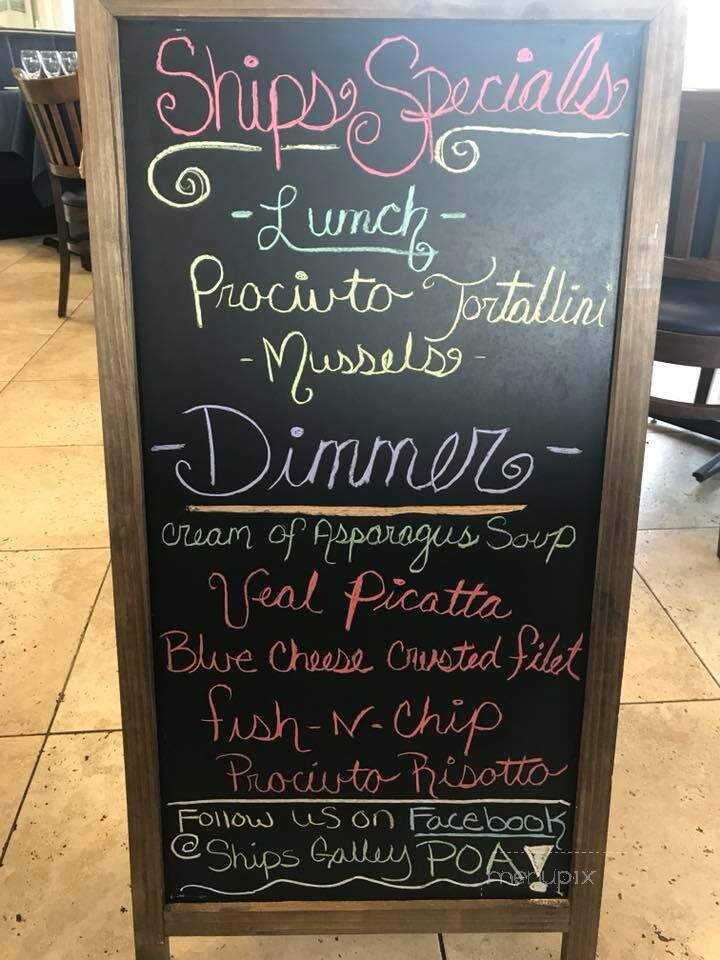 Ships Specials
- Lunch -
Prociuto Tortallini
- Mussels -
- Dinner -
cream of Asparagus Soup
Veal Picatta
Blue Cheese Crusted filet
fish-N-Chip
Prociuto Risotto
Follow us on Facebook
@ Ships Galley POA!
menupix